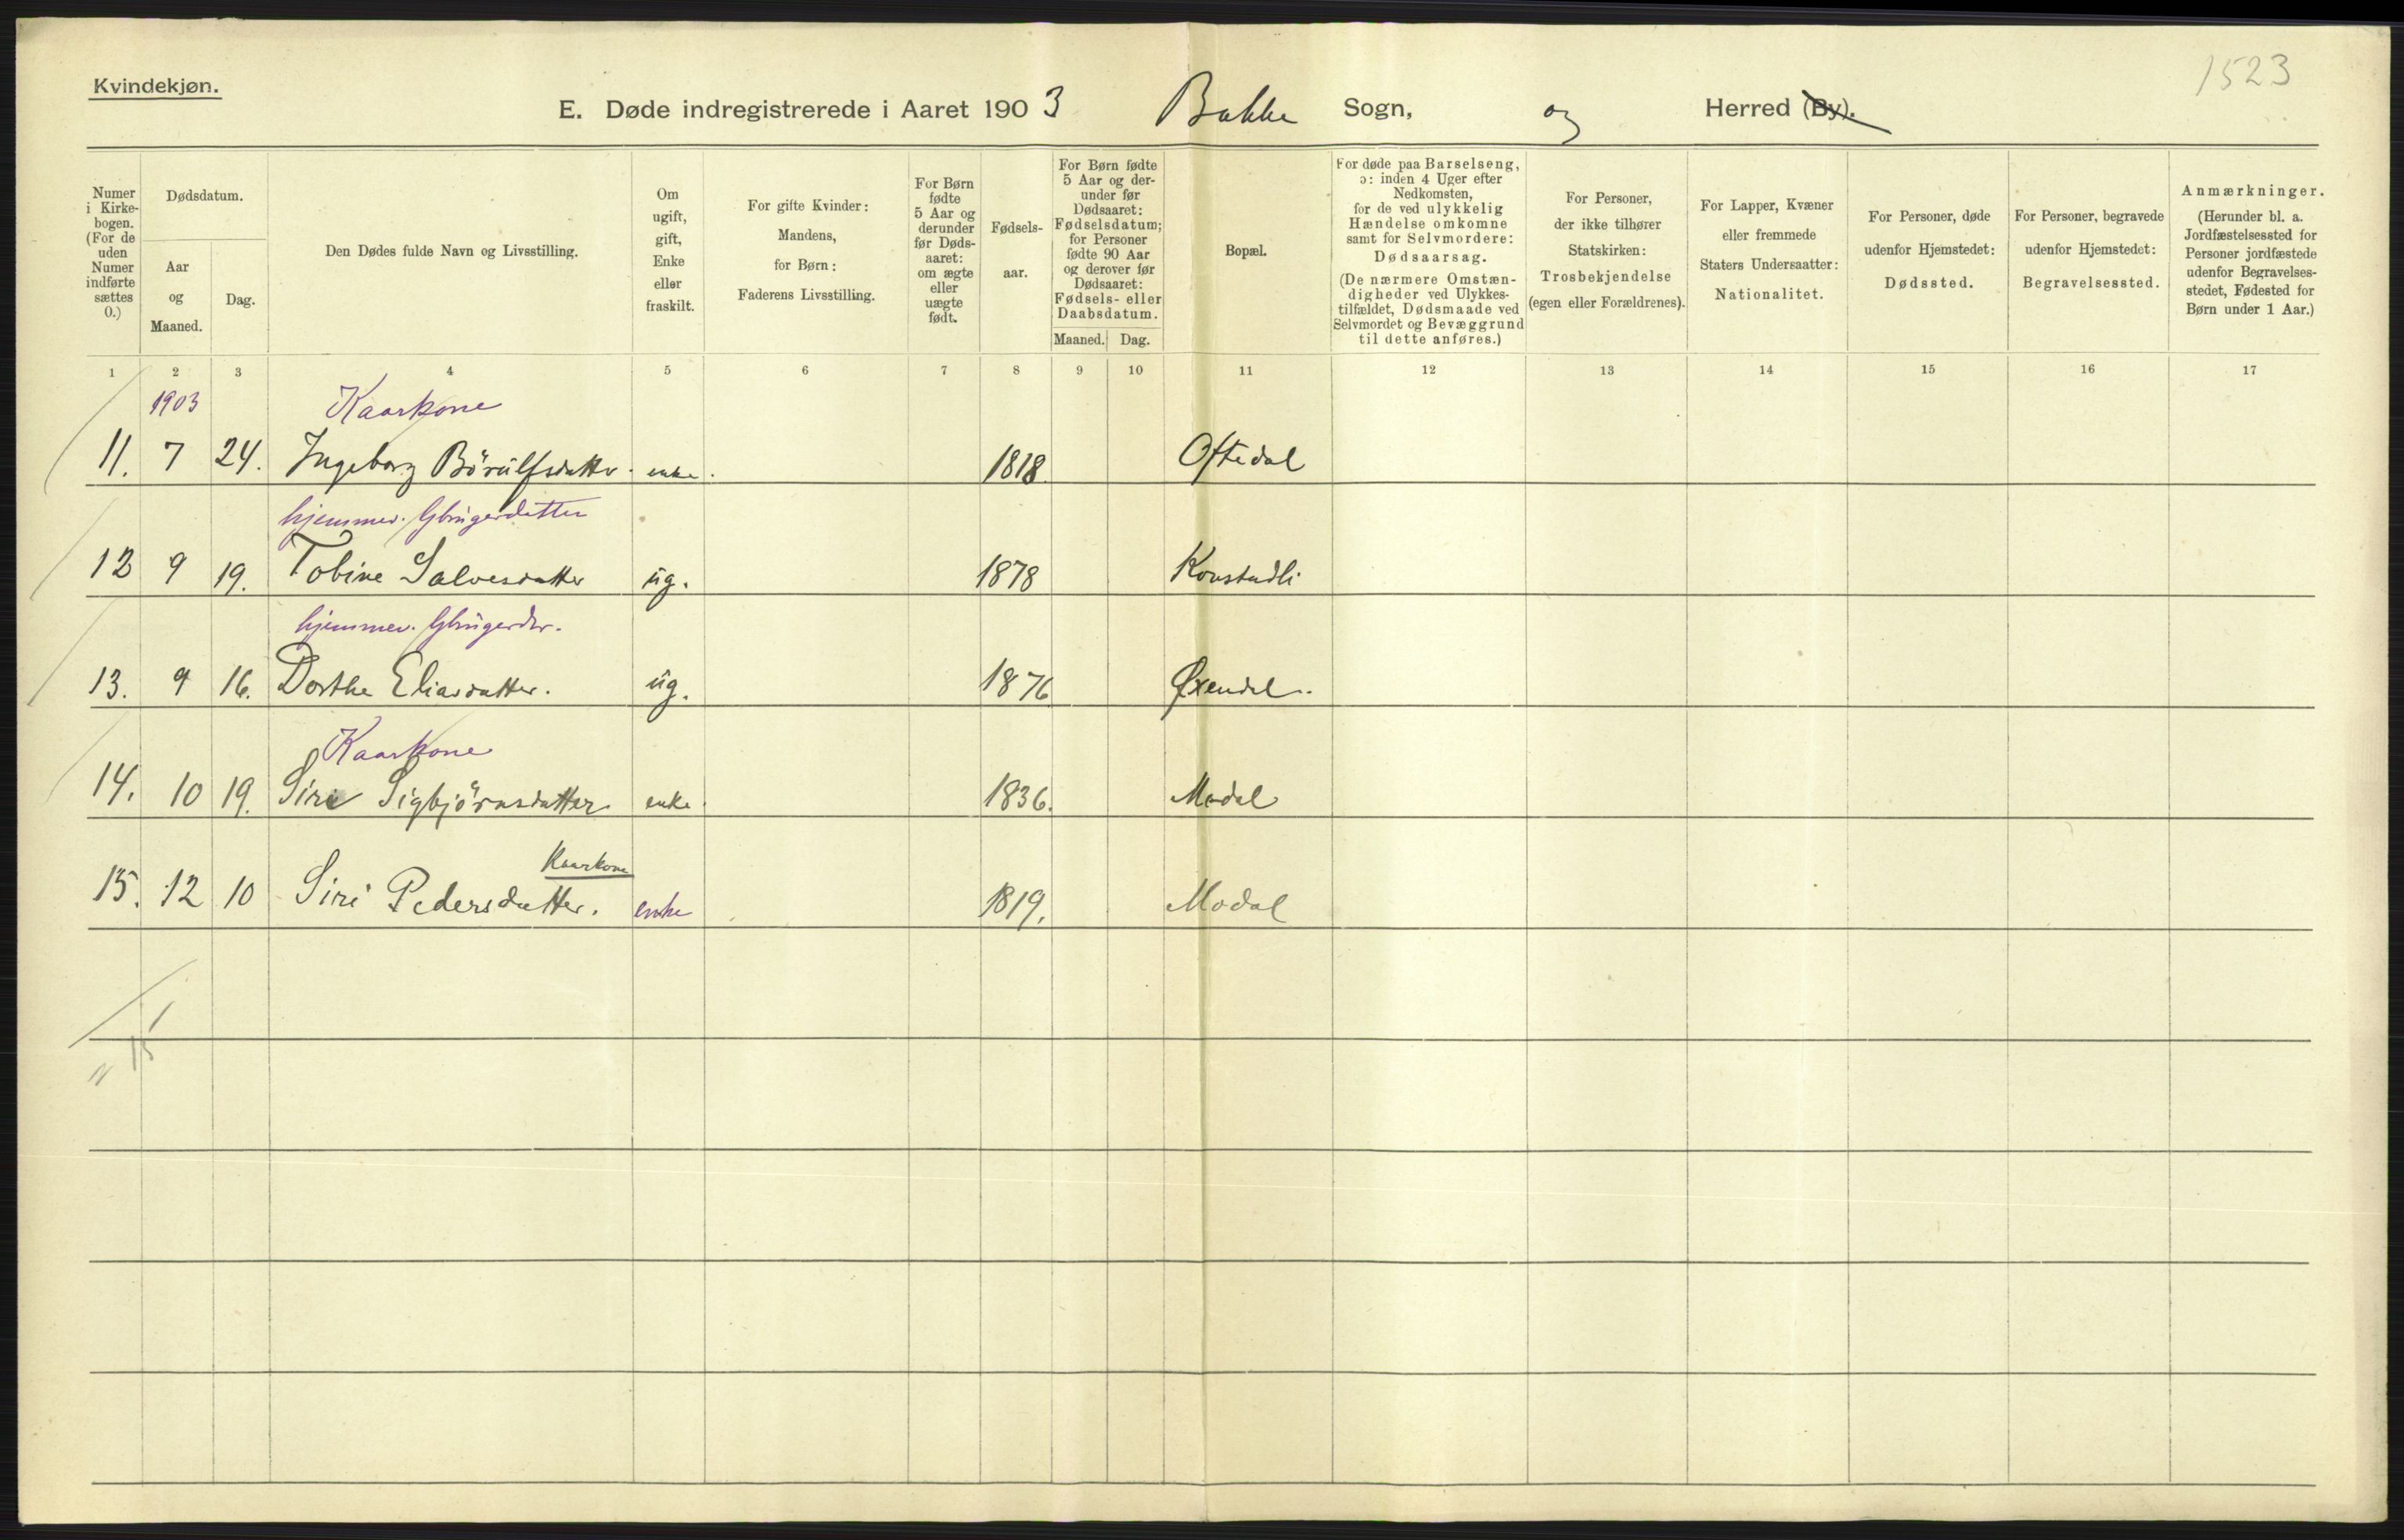 1523
Kvindekjøn.
E. Døde indregistrerede i Aaret 1903 Bakke Sogn, og Herred (By).
Numer i Kirke-bogen. (For de uden Numer indførte sættes 0.)
Dødsdatum.
Aar og Maaned.
Dag.
Den Dødes fulde Navn og Livsstilling.
Om ugift, gift, Enke eller fraskilt.
For gifte Kvinder: Mandens, for Børn: Faderens Livsstilling.
For Børn fødte 5 Aar og derunder før Døds-aaret: om ægte eller uægte født.
Fødsels-aar.
For Børn fødte 5 Aar og der-under før Dødsaaret: Fødselsdatum; for Personer fødte 90 Aar og derover før Dødsaaret: Fødsels- eller Daabsdatum.
Maaned. Dag.
Bopæl.
For døde paa Barselseng, ɔ: inden 4 Uger efter Nedkomsten, for de ved ulykkelig Hændelse omkomne samt for Selvmordere: Dødsaarsag. (De nærmere Omstæn-digheder ved Ulykkes-tilfældet, Dødsmaade ved Selvmordet og Bevæggrund til dette anføres.)
For Personer, der ikke tilhører Statskirken: Trosbekjendelse (egen eller Forældrenes).
For Lapper, Kvæner eller fremmede Staters Undersaatter: Nationalitet.
For Personer, døde udenfor Hjemstedet: Dødssted.
For Personer, begravede udenfor Hjemstedet: Begravelsessted.
Anmærkninger. (Herunder bl. a. Jordfæstelsessted for Personer jordfæstede udenfor Begravelses-stedet, Fødested for Børn under 1 Aar.)
1 2 3 4 5 6 7 8 9 10 11 12 13 14 15 16 17
1903 Kaarkone
11. 7 24. Ingeborg Börülfsdatter. enke. 1818. Oftedal
hjemmev. Gbrugerdatter
12 9 19. Tobine Salvesdatter ug. 1878
hjemmev. Gbrugerdtr.
13. 9 16. Dorthe Eliasdatter. ug. 1876 Øxendal.
Kaarkone
14. 10 19. Siri Sigbjörnsdatter enke. 1836. Modal
Kaarkone
15. 12 10 Siri Pedersdatter. enke 1819. Modal
15